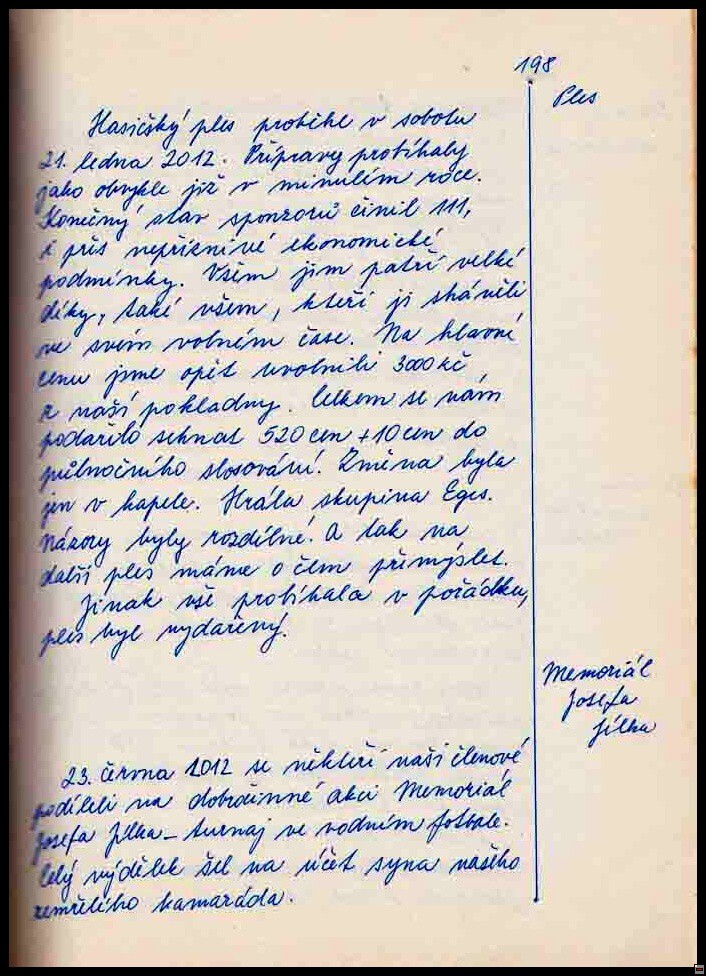 198
Ples
Hasičský ples proběhl v sobotu
21. ledna 2012. Přípravy probíhaly
jako obvykle již v minulém roce.
Konečný stav sponzorů činil 111,
i přes nepříznivé ekonomické
podmínky. Všem jim patří velké
díky, také všem, kteří ji sháněli
ve svém volném čase. Na hlavní
cenu jsme opět uvolnili 3000 kč
z naší pokladny. Celkem se nám
podařilo sehnat 520 cen + 10 cen do
půlnočního slosování. Změna byla
jen v kapele. Hrála skupina Eges.
Názory byly rozdílné. A tak na
další ples máme o čem přemýšlet.
Jinak vše probíhala v pořádku,
ples byl vydařený.
Memoriál
Josefa
Jílka
23. června 2012 se někteří naši členové
podíleli na dobročinné akci Memoriál
Josefa Jílka – turnaj ve vodním fotbale.
Celý výdělek šel na účet syna našeho
zemřelého kamaráda.